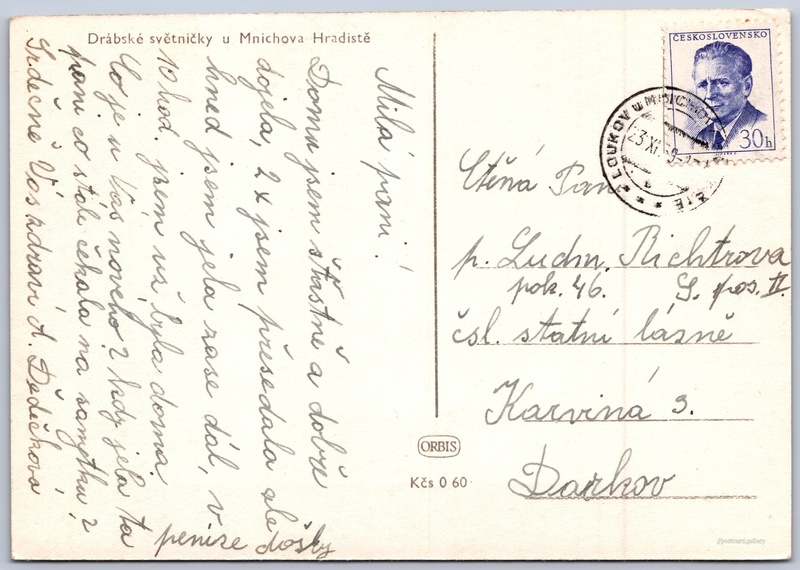 Drábské světničky u Mnichova Hradiště
Milá paní!
Domů jsem šťastně a dobře
dojela, 2x jsem přesedala ale
hned jsem jela zase dál, v
10 hod. jsem už byla doma.
Co je u Vás nového? kdy jela ta
paní co stále čekala na sanytku?
Srdečně Vás zdraví A. Dědečková
peníze došly
ČESKOSLOVENSKO
30h
LOUKOV u MNICHOVA
23.XI.
Ctěná Paní
p. Ludm. Richtrova
pok. 46. S. pos. II.
čsl. statní lázně
Karviná 3.
Darkov
ORBIS
Kčs 0 60
postcard.gallery